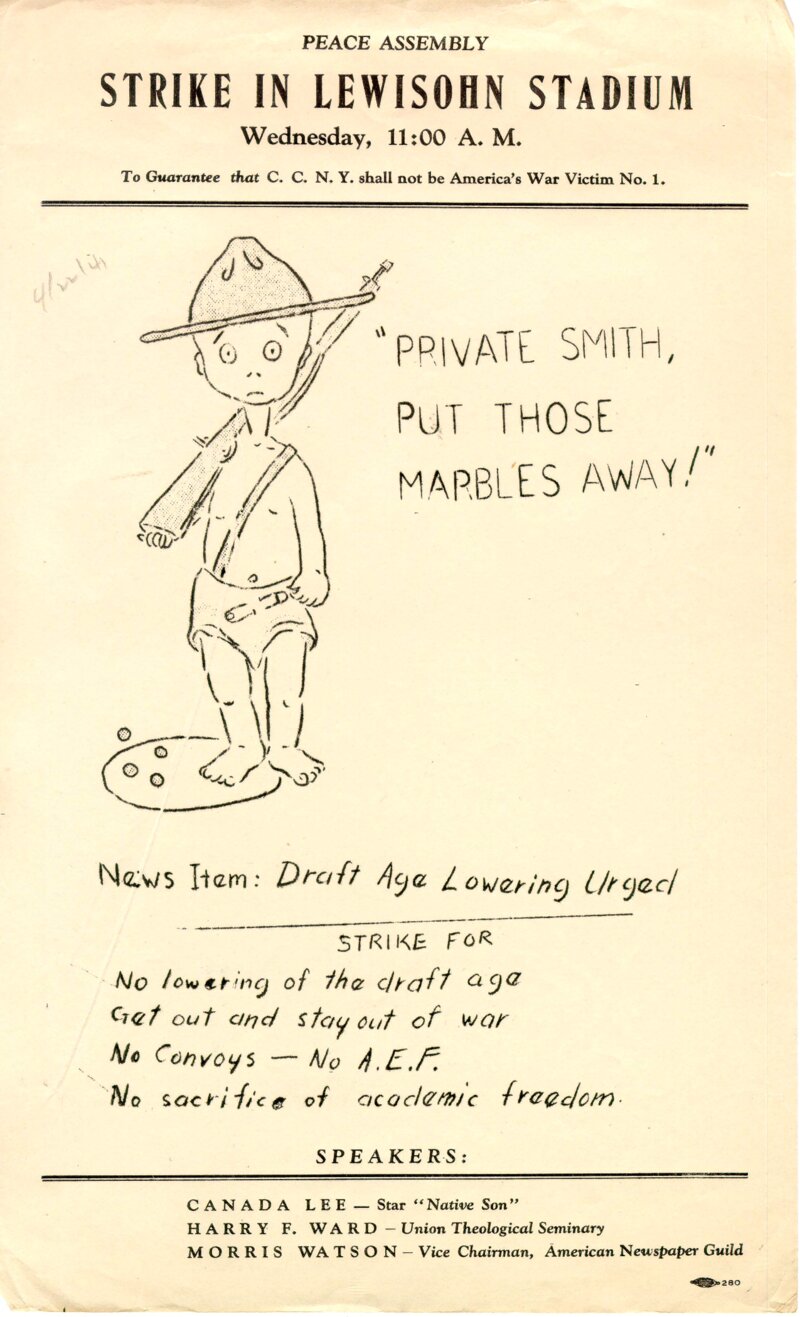 PEACE ASSEMBLY
STRIKE IN LEWISOHN STADIUM
Wednesday, 11:00 A. M.
To Guarantee that C. C. N. Y. shall not be America's War Victim No. 1.
4/22/41
"PRIVATE SMITH,
PUT THOSE
MARBLES AWAY!"
News Item: Draft Age Lowering Urged
STRIKE FOR
No lowering of the draft age
Get out and stay out of war
No Convoys — No A.E.F.
No sacrifice of academic freedom.
SPEAKERS:
CANADA LEE — Star "Native Son"
HARRY F. WARD — Union Theological Seminary
MORRIS WATSON — Vice Chairman, American Newspaper Guild
280